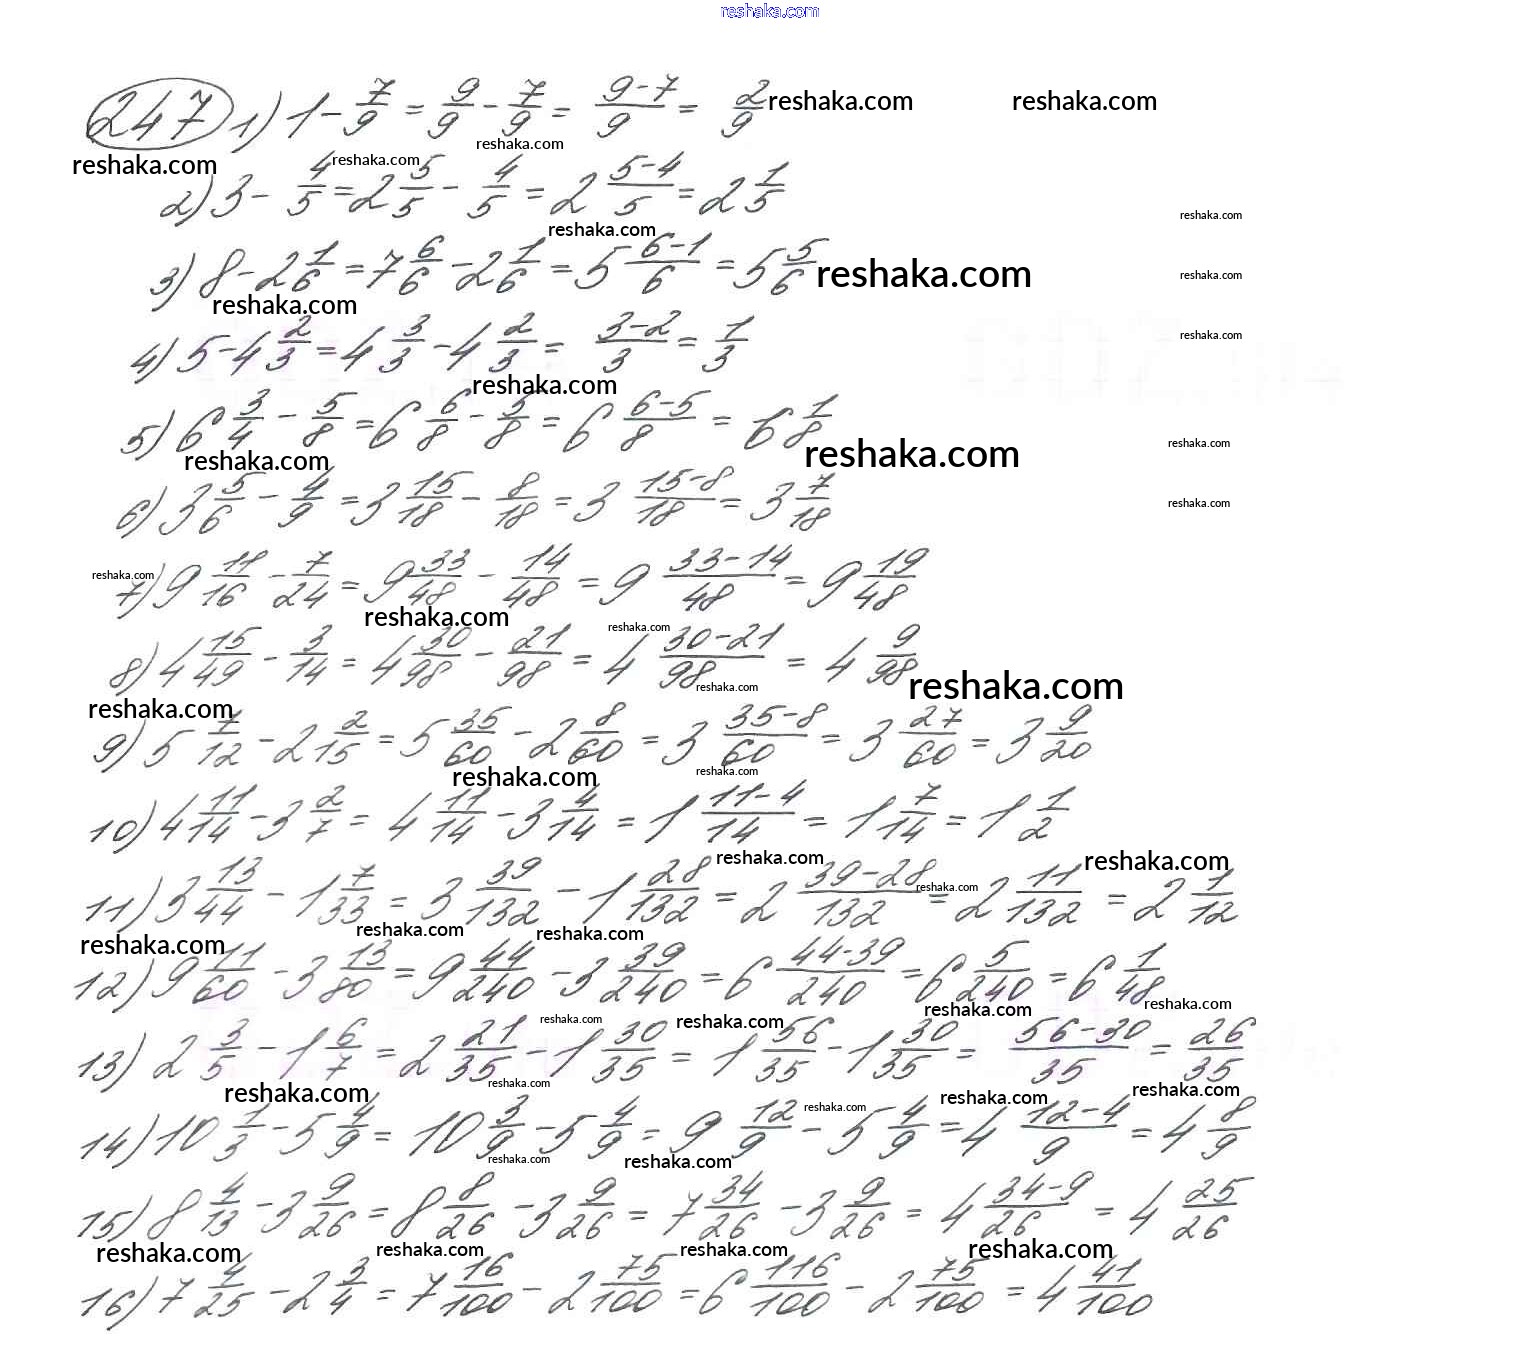 reshaka.com
247 1) 1 - 7/9 = 9/9 - 7/9 = (9-7)/9 = 2/9 reshaka.com reshaka.com
reshaka.com reshaka.com reshaka.com
2) 3 - 4/5 = 2 5/5 - 4/5 = 2 (5-4)/5 = 2 1/5 reshaka.com
reshaka.com
3) 8 - 2 1/6 = 7 6/6 - 2 1/6 = 5 (6-1)/6 = 5 5/6 reshaka.com reshaka.com
reshaka.com
4) 5 - 4 2/3 = 4 3/3 - 4 2/3 = (3-2)/3 = 1/3 reshaka.com
reshaka.com
5) 6 3/4 - 5/8 = 6 6/8 - 5/8 = 6 (6-5)/8 = 6 1/8 reshaka.com
reshaka.com reshaka.com
6) 3 5/6 - 4/9 = 3 15/18 - 8/18 = 3 (15-8)/18 = 3 7/18 reshaka.com
reshaka.com
7) 9 11/16 - 7/24 = 9 33/48 - 14/48 = 9 (33-14)/48 = 9 19/48
reshaka.com reshaka.com
8) 4 15/49 - 3/14 = 4 30/98 - 21/98 = 4 (30-21)/98 = 4 9/98
reshaka.com reshaka.com
reshaka.com
9) 5 7/12 - 2 2/15 = 5 35/60 - 2 8/60 = 3 (35-8)/60 = 3 27/60 = 3 9/20
reshaka.com reshaka.com
10) 4 11/14 - 3 2/7 = 4 11/14 - 3 4/14 = 1 (11-4)/14 = 1 7/14 = 1 1/2
reshaka.com reshaka.com
11) 3 13/44 - 1 7/33 = 3 39/132 - 1 28/132 = 2 (39-28)/132 = 2 11/132 = 2 1/12
reshaka.com
reshaka.com reshaka.com reshaka.com
12) 9 11/60 - 3 13/80 = 9 44/240 - 3 39/240 = 6 (44-39)/240 = 6 5/240 = 6 1/48
reshaka.com reshaka.com
reshaka.com reshaka.com
13) 2 3/5 - 1 6/7 = 2 21/35 - 1 30/35 = 1 56/35 - 1 30/35 = (56-30)/35 = 26/35
reshaka.com reshaka.com reshaka.com reshaka.com
reshaka.com
14) 10 1/3 - 5 4/9 = 10 3/9 - 5 4/9 = 9 12/9 - 5 4/9 = 4 (12-4)/9 = 4 8/9
reshaka.com reshaka.com
15) 8 4/13 - 3 9/26 = 8 8/26 - 3 9/26 = 7 34/26 - 3 9/26 = 4 (34-9)/26 = 4 25/26
reshaka.com reshaka.com reshaka.com reshaka.com
16) 7 4/25 - 2 3/4 = 7 16/100 - 2 75/100 = 6 116/100 - 2 75/100 = 4 41/100